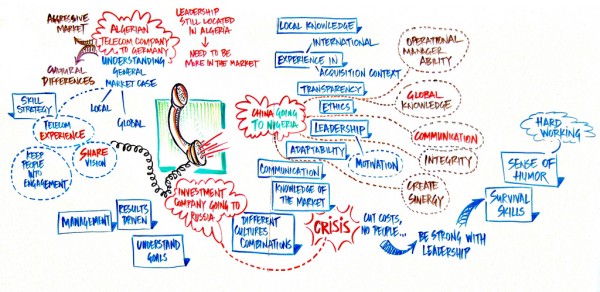 AGGRESSIVE
MARKET
CULTURAL
DIFFERENCES
ALGERIAN
TELECOM COMPANY
TO GERMANY
UNDERSTANDING
GENERAL
MARKET CASE
LOCAL
GLOBAL
LEADERSHIP
STILL LOCATED
IN ALGERIA
NEED TO BE
MORE IN THE MARKET
SKILL
STRATEGY
TELECOM
EXPERIENCE
KEEP
PEOPLE
INTO
ENGAGEMENT
SHARE
VISION
INVESTMENT
COMPANY GOING TO
RUSSIA
MANAGEMENT
RESULTS
DRIVEN
UNDERSTAND
GOALS
LOCAL KNOWLEDGE
INTERNATIONAL
EXPERIENCE IN
ACQUISITION CONTEXT
TRANSPARENCY
ETHICS
CHINA GOING
TO NIGERIA
LEADERSHIP
ADAPTABILITY
MOTIVATION
COMMUNICATION
KNOWLEDGE OF
THE MARKET
OPERATIONAL
MANAGER
ABILITY
GLOBAL
KNOWLEDGE
COMMUNICATION
INTEGRITY
CREATE
SINERGY
DIFFERENT
CULTURES
COMBINATIONS
CRISIS
CUT COSTS,
NO PEOPLE...
BE STRONG WITH
LEADERSHIP
SURVIVAL
SKILLS
SENSE OF
HUMOR
HARD
WORKING